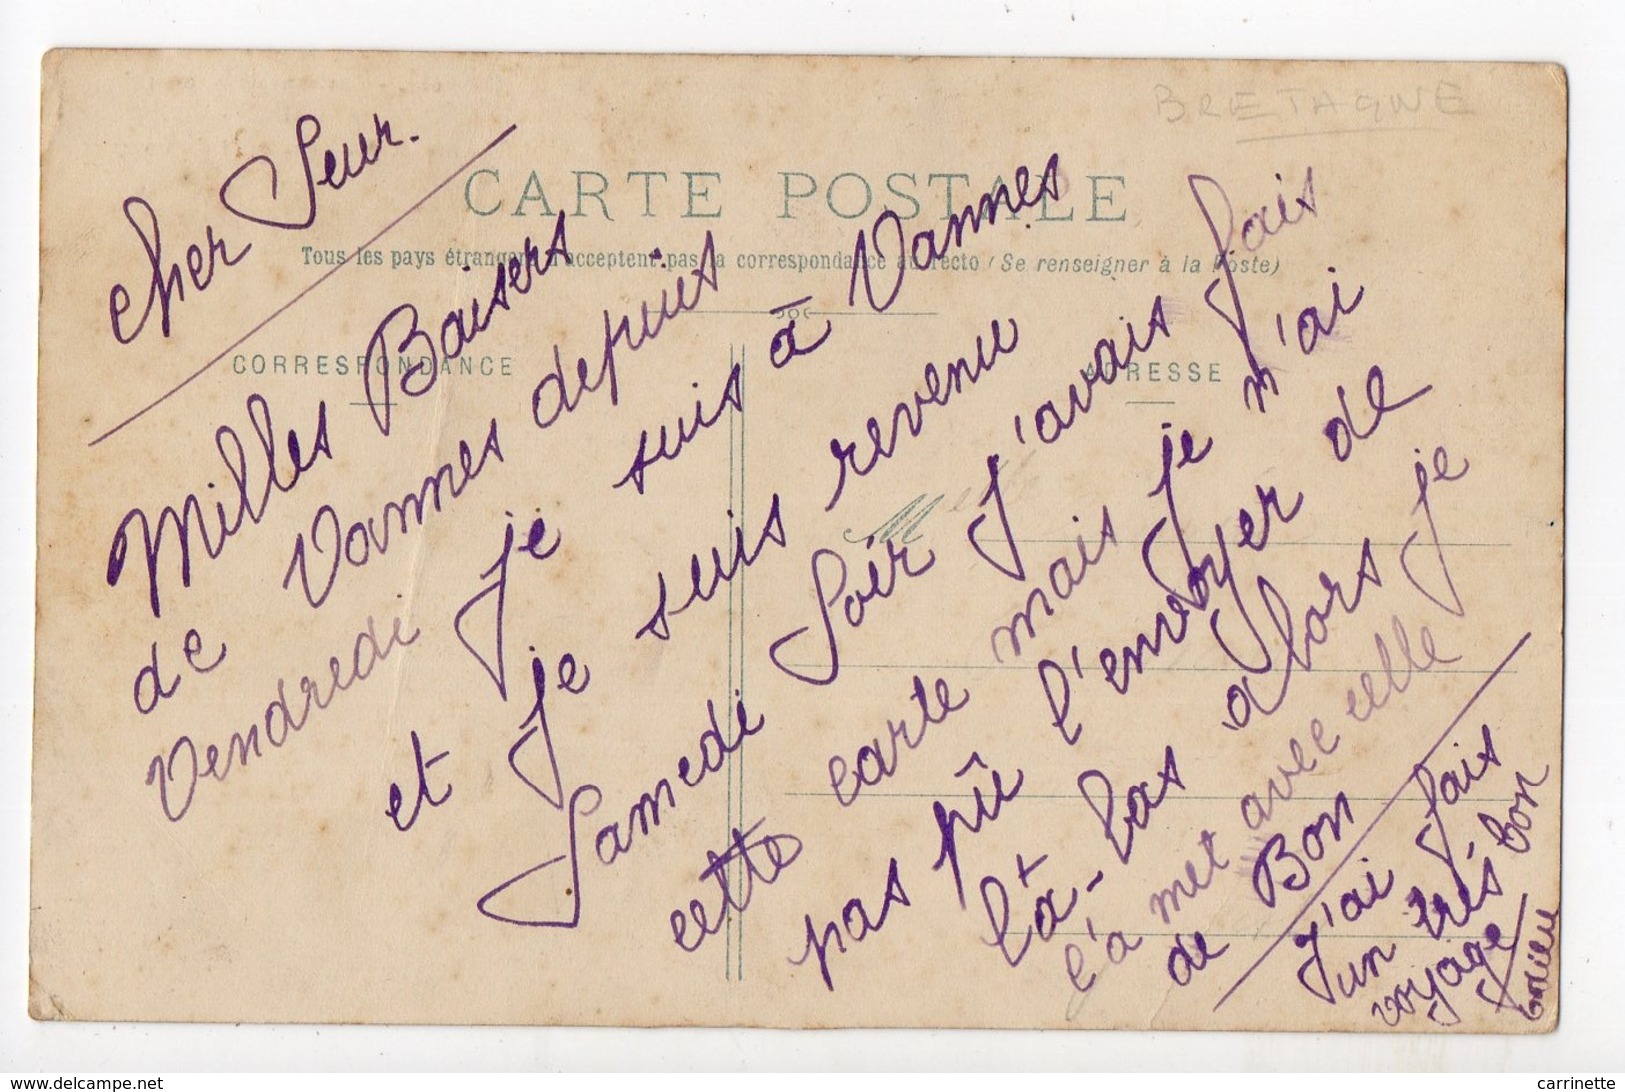 BRETAGNE
CARTE POSTALE
Tous les pays étrangers n'acceptent pas la correspondance au recto (Se renseigner à la Poste)
CORRESPONDANCE
ADRESSE
Cher Seur.
Milles Baisers
de Vannes depuis
Vendredi je suis à Vannes
et je suis revenu
Samedi Soir j'avais fais
cette carte mais je n'ai
pas pû l'envoyer de
là-bas alors je
l'a met avec celle
de Bon
J'ai fais
un très bon
voyage
delcampe.net
carrinette